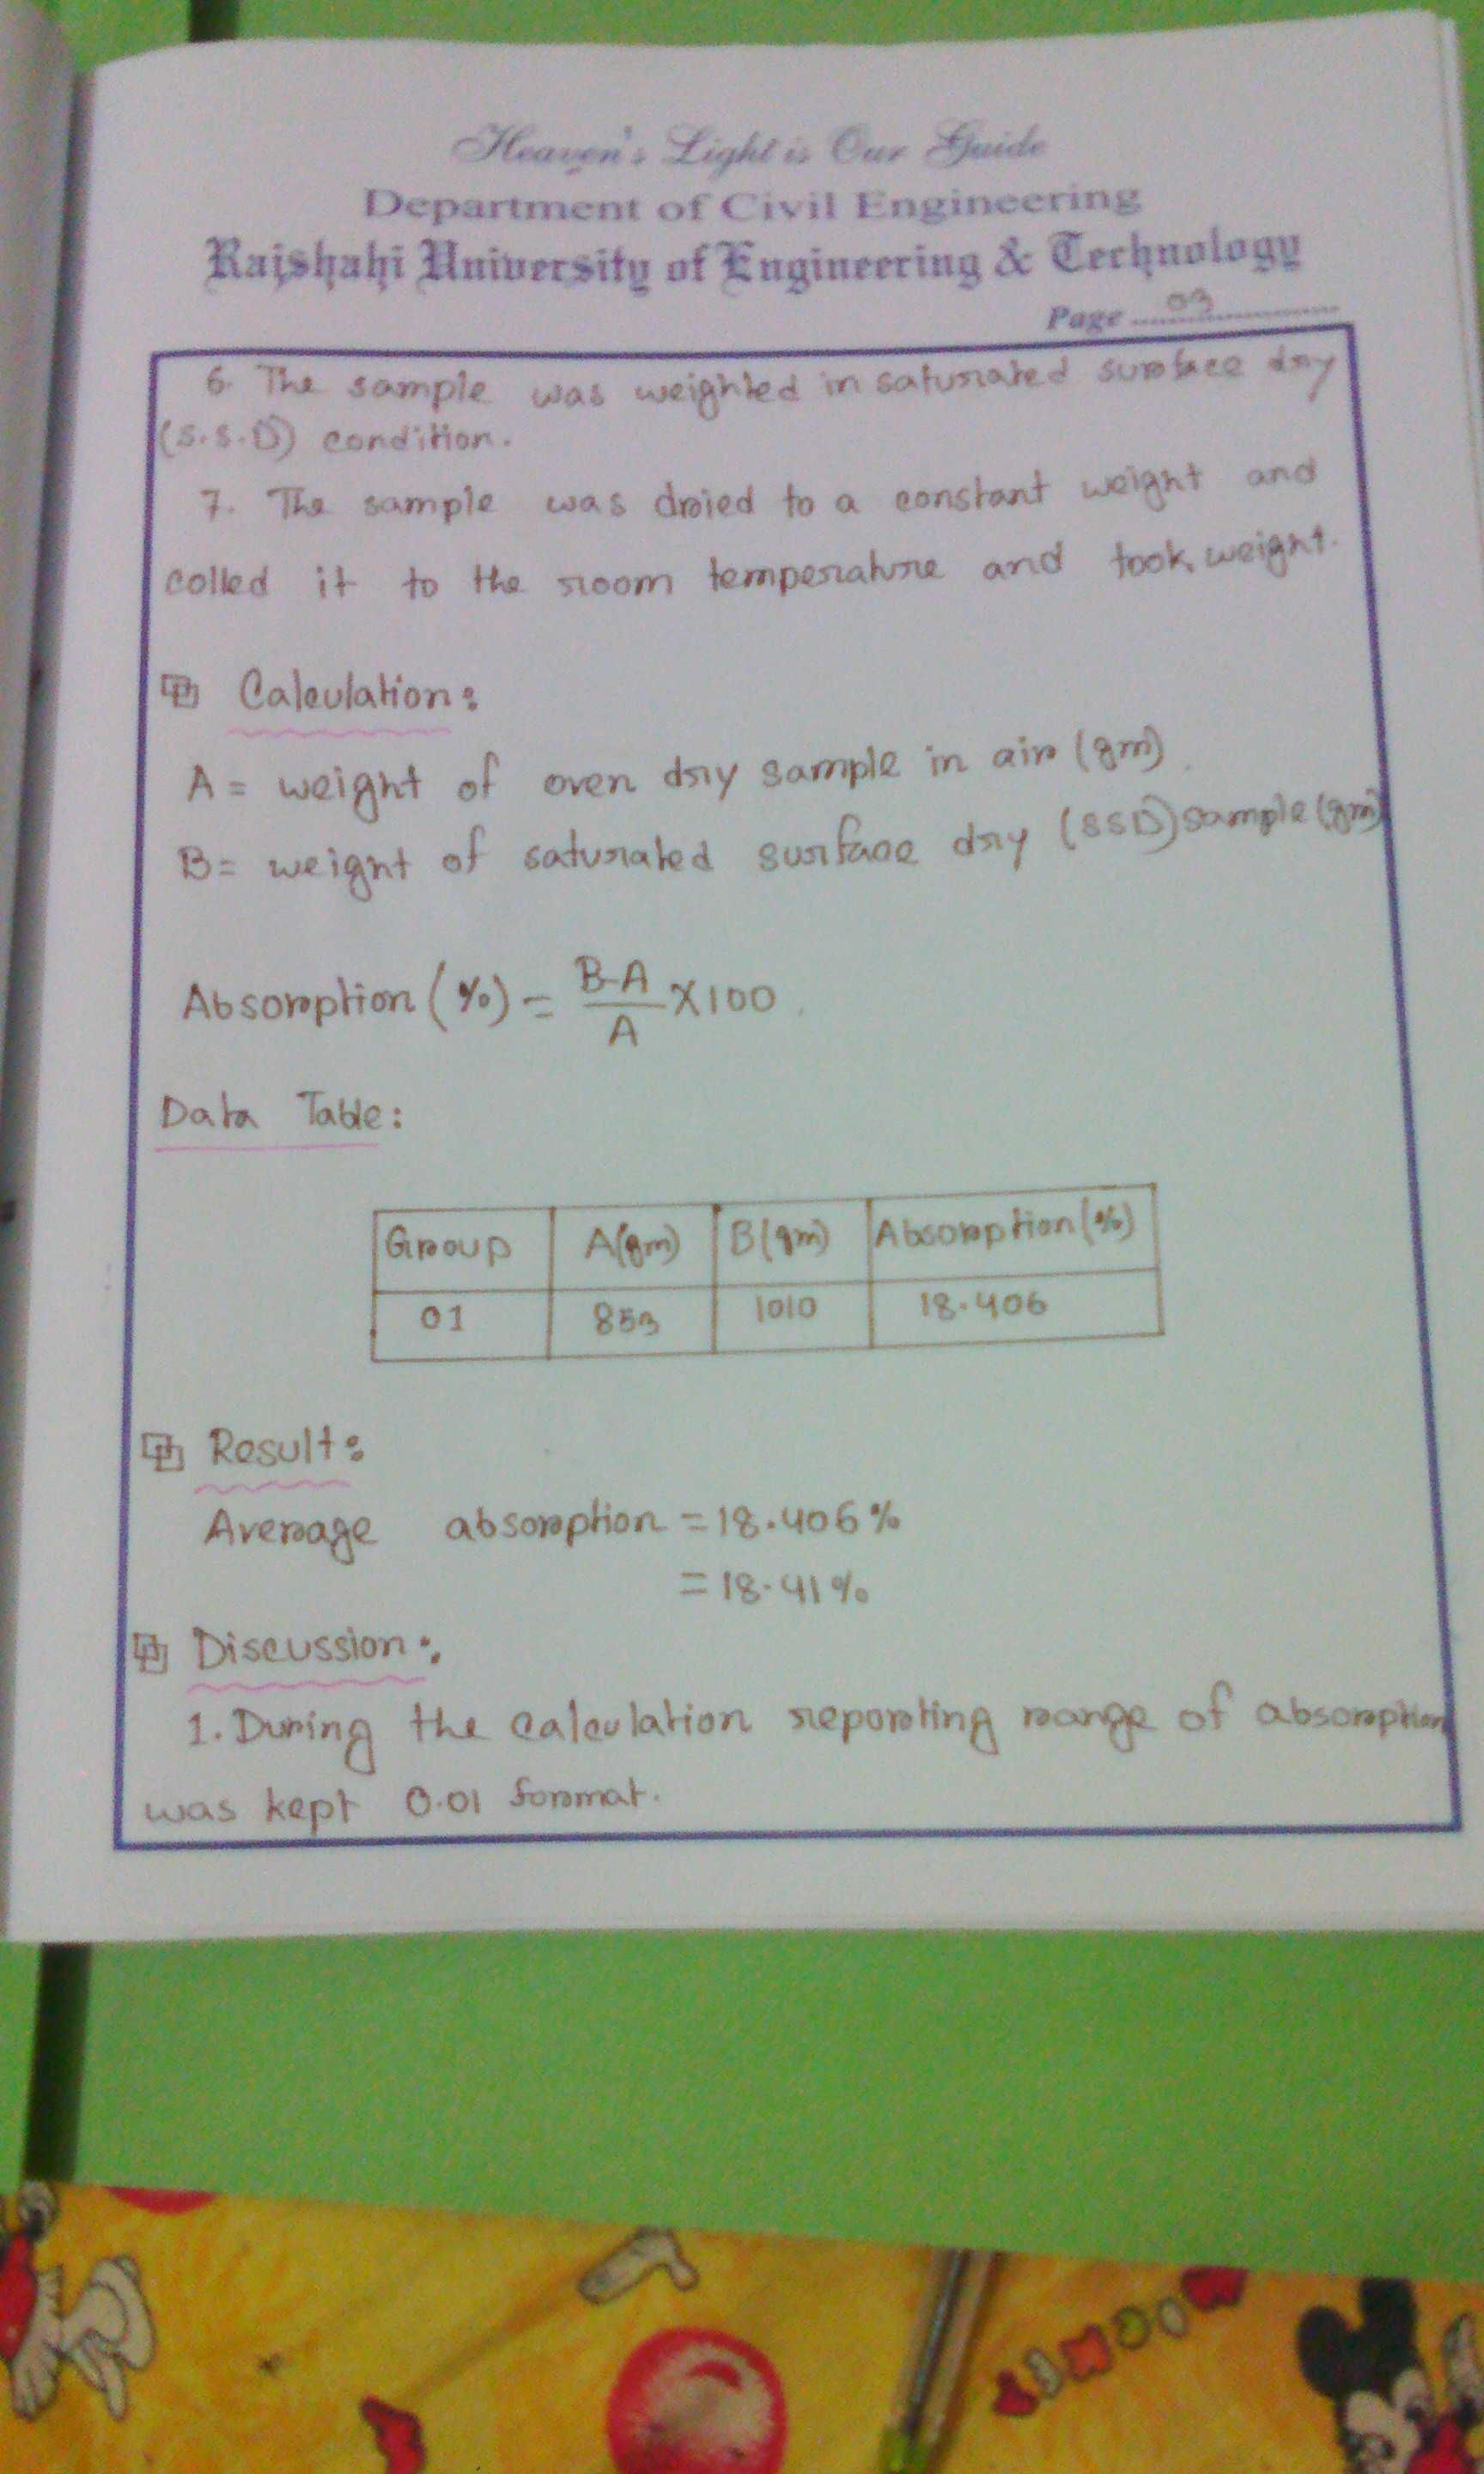 Heaven's Light is Our Guide
Department of Civil Engineering
Rajshahi University of Engineering & Technology
Page 03
6. The sample was weighted in saturated surface dry
(S.S.D) condition.
7. The sample was dried to a constant weight and
colled it to the room temperature and took weight.
Calculation:
A = weight of oven dry sample in air (gm)
B = weight of saturated surface dry (SSD) sample (gm)
Absorption (%) = B-A/A X100
Data Table:
Group A(gm) B(gm) Absorption (%)
01 853 1010 18.406
Result:
Average absorption = 18.406%
= 18.41%
Discussion:
1. During the calculation reporting range of absorption
was kept 0.01 format.